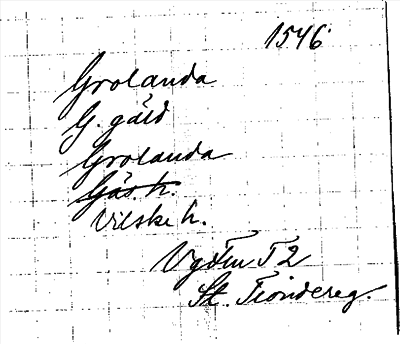 1546
Grolanda
G. gäld
Grolanda
Gäs. h.
Vilske h.
Vgötm T2
St. Tiondereg.